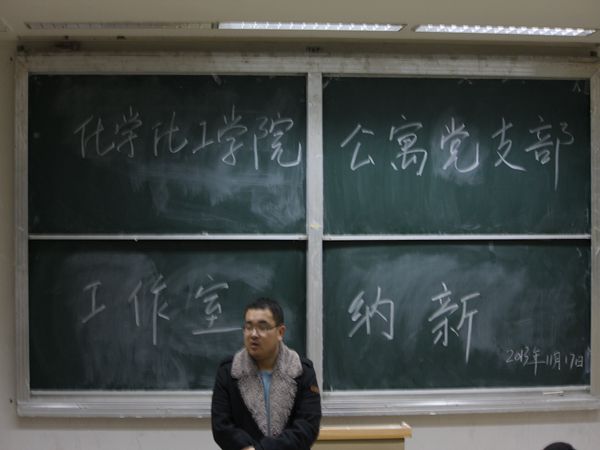 化学化工学院 公寓党支部
工作室 纳新
2013年11月17日